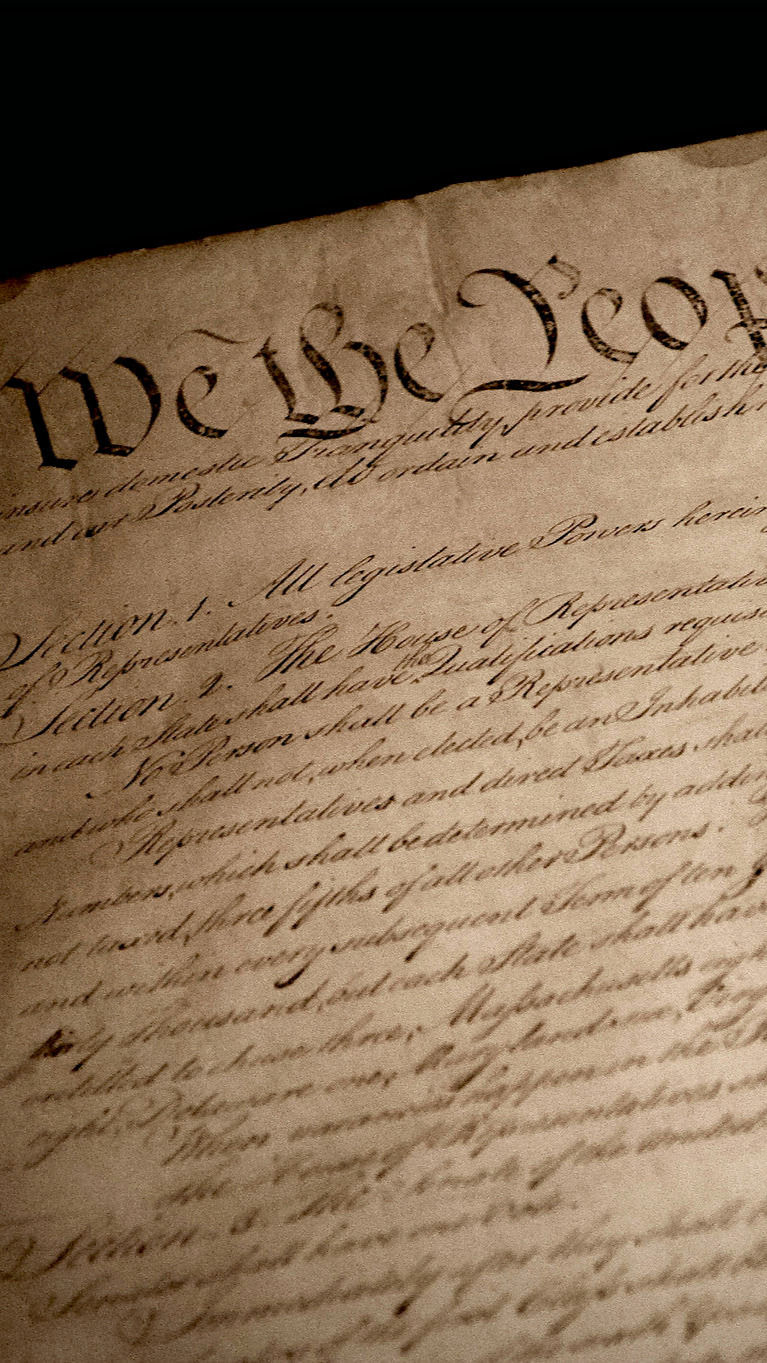 We the Peop
insure domestic Tranquility, provide for the
and our Posterity, do ordain and establish
Section. 1. All legislative Powers herein
of Representatives.
Section. 2. The House of Representativ
in each State shall have the Qualifications reques
No Person shall be a Representative
and who shall not, when elected, be an Inhabit
Representatives and direct Taxes shal
Numbers, which shall be determined by addin
not taxed, three fifths of all other Persons.
and within every subsequent Term of ten
thirty Thousand, but each State shall hav
entitled to chuse three, Massachusetts eigh
eight, Delaware one, Maryland six, Virg
When vacancies happen in the
the House of Representatives
Section. 3. The Senate of the United
Senator shall have one Vote.
Immediately after they shall
of the first Class shall